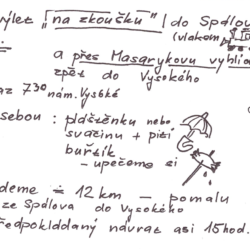 výlet „na zkoušku" do Spálova
(vlakem)
a přes Masarykovu vyhlíd
zpět do Vysokého
az 7³⁰ nám. Vysoké
sebou : pláštěnku nebo
svačinu + pití
buřtík
- upečeme si
deme ≐ 12 km - pomalu
ze Spálova do Vysokého
ředpokládaný návrat asi 15 hod.